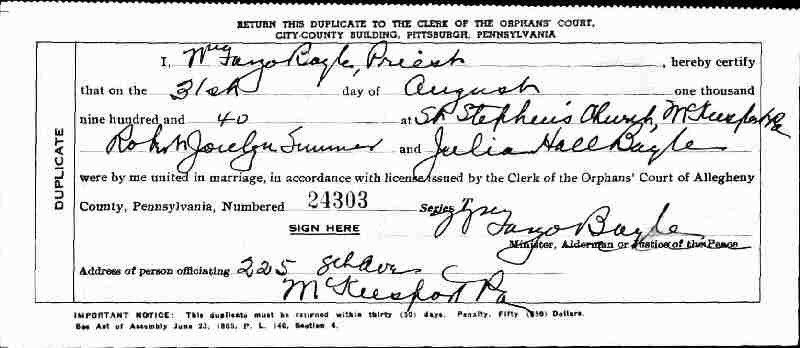 RETURN THIS DUPLICATE TO THE CLERK OF THE ORPHANS' COURT,
CITY-COUNTY BUILDING, PITTSBURGH, PENNSYLVANIA
DUPLICATE
I, Bayle, Priest, hereby certify
that on the 31st day of August one thousand
nine hundred and 40 at St Stephen's Church, McKeesport Pa
Jocelyn and Julia Hall Bayle
were by me united in marriage, in accordance with license issued by the Clerk of the Orphans' Court of Allegheny
County, Pennsylvania, Numbered 24303 Series
SIGN HERE Bayle
Minister, Alderman or Justice of the Peace
Address of person officiating 225 8th Ave
McKeesport Pa
IMPORTANT NOTICE: This duplicate must be returned within thirty (30) days. Penalty, Fifty ($50) Dollars.
See Act of Assembly June 23, 1885, P. L. 146, Section 4.